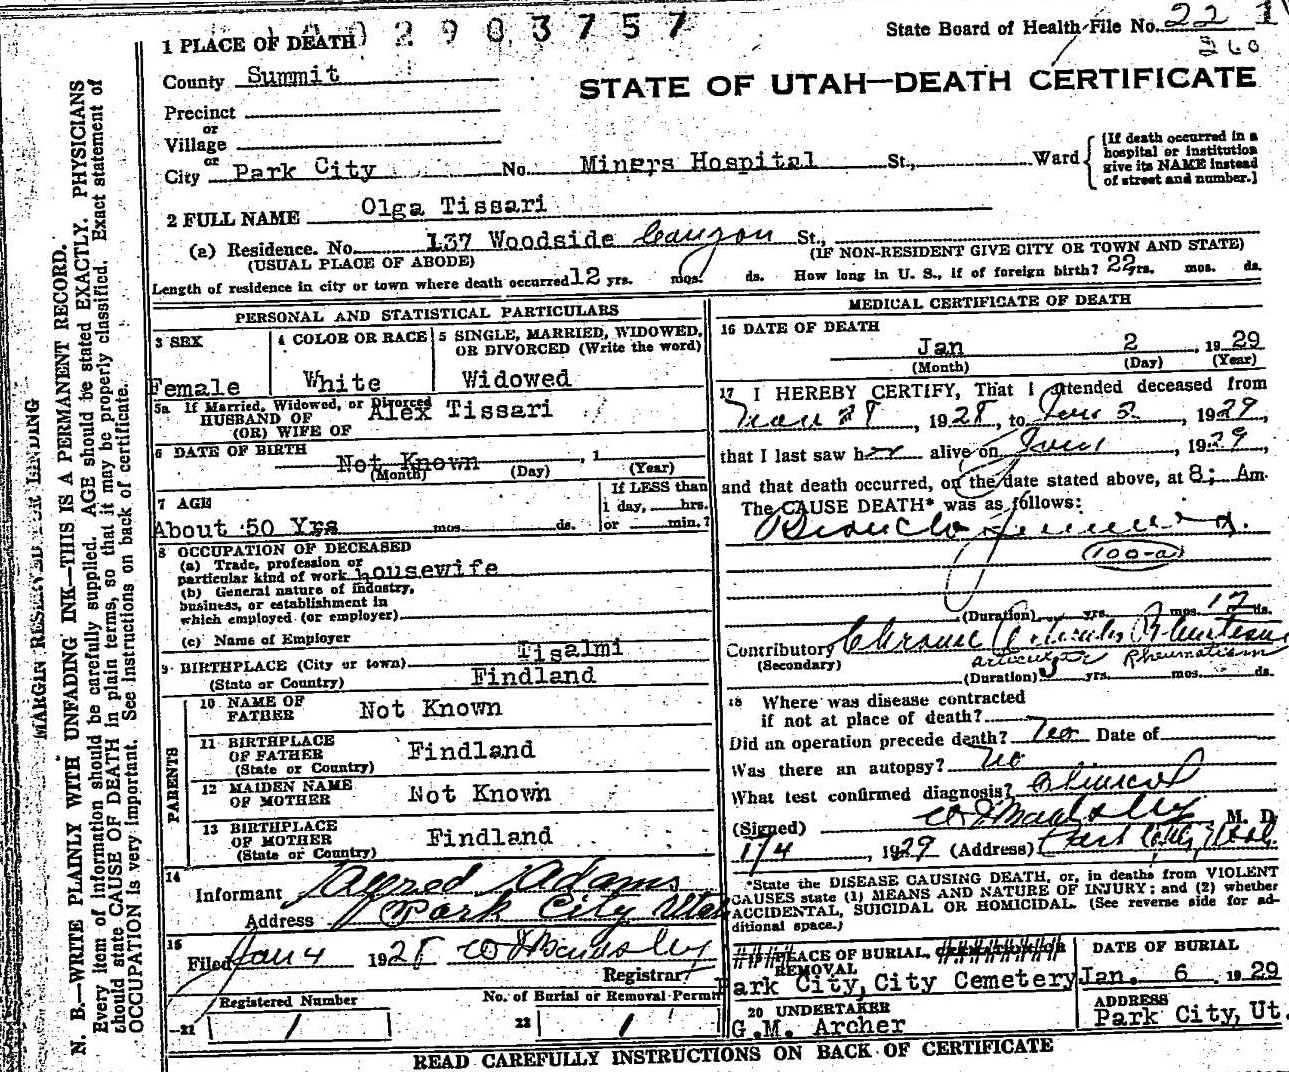 2903757
State Board of Health File No. 22
260
1 PLACE OF DEATH
County Summit
STATE OF UTAH—DEATH CERTIFICATE
Precinct
or
Village
or
City Park City No. Miners Hospital St., Ward
[If death occurred in a
hospital or institution
give its NAME instead
of street and number.]
2 FULL NAME Olga Tissari
(a) Residence. No. 137 Woodside Canyon St.,
(USUAL PLACE OF ABODE) (IF NON-RESIDENT GIVE CITY OR TOWN AND STATE)
Length of residence in city or town where death occurred 12 yrs. mos. ds. How long in U. S., if of foreign birth? 22 yrs. mos. ds.
PERSONAL AND STATISTICAL PARTICULARS
3 SEX
Female
4 COLOR OR RACE
White
5 SINGLE, MARRIED, WIDOWED,
OR DIVORCED (Write the word)
Widowed
5a If Married, Widowed, or Divorced
HUSBAND OF Alex Tissari
(OR) WIFE OF
6 DATE OF BIRTH
Not Known , 1
(Month) (Day) (Year)
7 AGE
About 50 Yrs mos. ds.
If LESS than
1 day, hrs.
or min.?
8 OCCUPATION OF DECEASED
(a) Trade, profession or
particular kind of work housewife
(b) General nature of industry,
business, or establishment in
which employed (or employer)
(c) Name of Employer
9 BIRTHPLACE (City or town) Tisalmi
(State or Country) Findland
PARENTS
10 NAME OF
FATHER Not Known
11 BIRTHPLACE
OF FATHER Findland
(State or Country)
12 MAIDEN NAME
OF MOTHER Not Known
13 BIRTHPLACE
OF MOTHER Findland
(State or Country)
14
Informant Alfred Adams
Address Park City Utah
15
Filed Jan 4 1928
Registrar
Registered Number
21 1
No. of Burial or Removal Permit
22 1
MEDICAL CERTIFICATE OF DEATH
16 DATE OF DEATH
Jan 2 , 1929
(Month) (Day) (Year)
17 I HEREBY CERTIFY, That I attended deceased from
1928, to Jan 2, 1929,
that I last saw her alive on Jan 1, 1929,
and that death occurred, on the date stated above, at 8; Am.
The CAUSE DEATH* was as follows:
Broncho
(100-a)
(Duration) yrs. mos. 12 ds.
Contributory Chronic Articular Rheumatism
(Secondary) articular Rheumatism
(Duration) yrs. mos. ds.
18 Where was disease contracted
if not at place of death?
Did an operation precede death? No Date of
Was there an autopsy? No
What test confirmed diagnosis? Clinical
(Signed) M. D.
1/4, 1929 (Address) Park City, Utah.
*State the DISEASE CAUSING DEATH, or, in deaths from VIOLENT
CAUSES state (1) MEANS AND NATURE OF INJURY; and (2) whether
ACCIDENTAL, SUICIDAL OR HOMICIDAL. (See reverse side for ad-
ditional space.)
PLACE OF BURIAL, CREMATION OR
REMOVAL
Park City, City Cemetery
DATE OF BURIAL
Jan. 6 1929
20 UNDERTAKER
G.M. Archer
ADDRESS
Park City, Ut.
READ CAREFULLY INSTRUCTIONS ON BACK OF CERTIFICATE
MARGIN RESERVED FOR BINDING
N. B.—WRITE PLAINLY WITH UNFADING INK—THIS IS A PERMANENT RECORD.
Every item of information should be carefully supplied. AGE should be stated EXACTLY. PHYSICIANS
should state CAUSE OF DEATH in plain terms, so that it may be properly classified. Exact statement of
OCCUPATION is very important. See instructions on back of certificate.